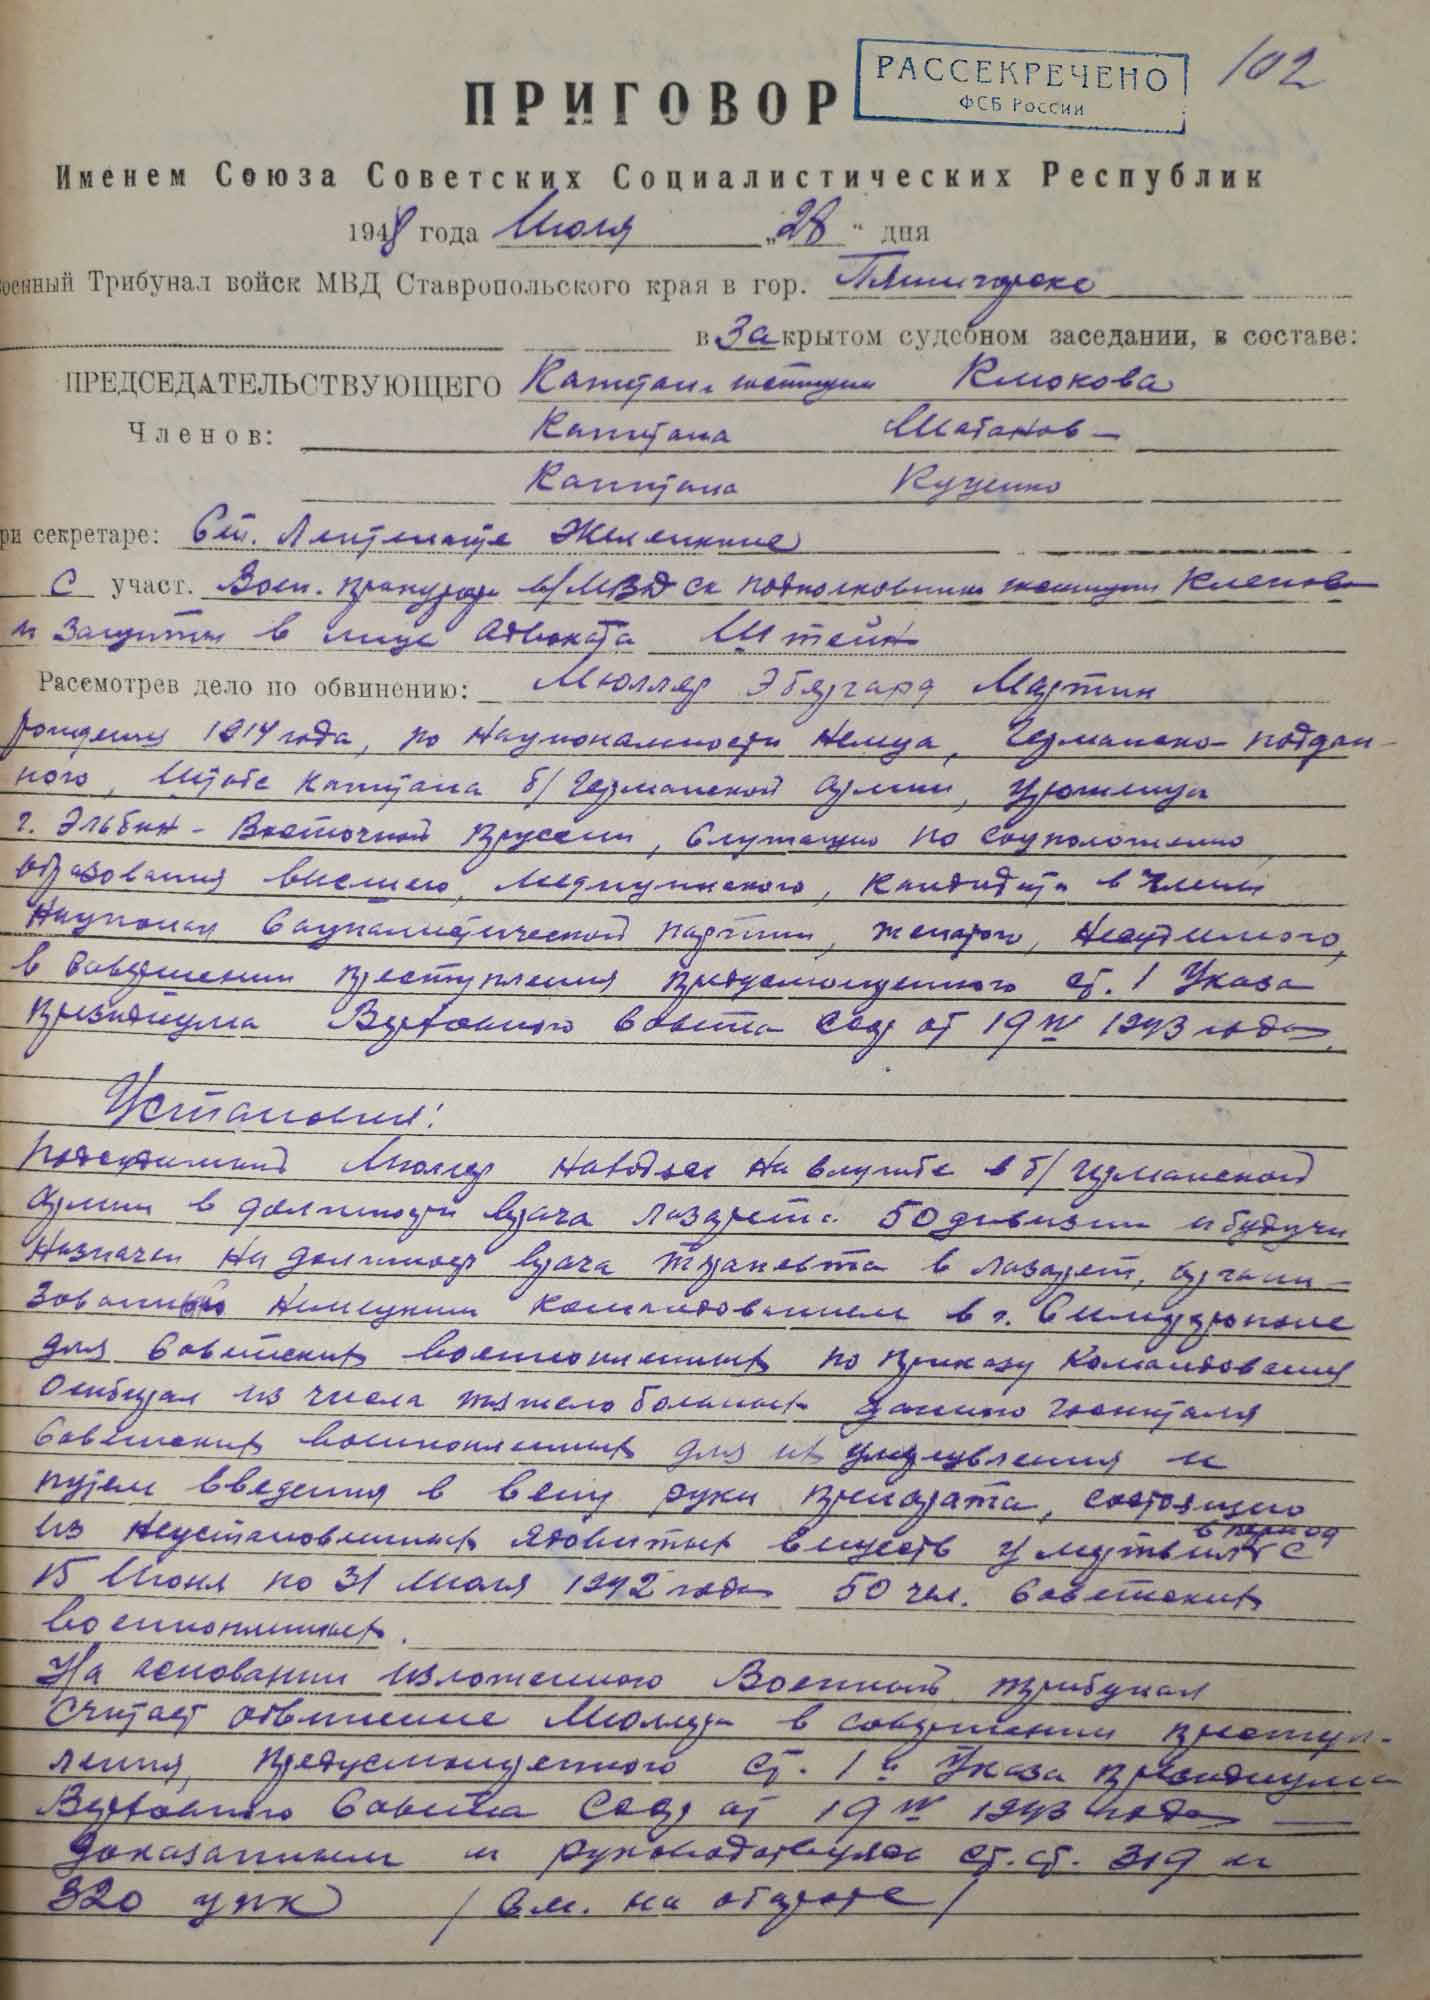 102
РАССЕКРЕЧЕНО
ФСБ России
ПРИГОВОР
Именем Союза Советских Социалистических Республик
1948 года Июля „28" дня
военный Трибунал войск МВД Ставропольского края в гор. Пятигорске
в Закрытом судебном заседании, в составе:
ПРЕДСЕДАТЕЛЬСТВУЮЩЕГО Капитан юстиции Клюкова
Членов: Капитана Шабанов
Капитана Куценко
ри секретаре: Ст. Лейтенанте
С участ. Воен. прокурора в/МВД СК подполковника юстиции
и защиты в лице адвоката Штейн
Рассмотрев дело по обвинению: Мюллер Эбергард Мартин
рождения 1914 года, по национальности немца, Германско-поддан-
ного, Штабс капитана б/Германской армии, уроженца
г. Эльбин - Восточной Пруссии, служащего по соцположению,
образования высшего, медицинского, кандидата в члены
Национал Социалистической партии, женатого, несудимого,
в совершении преступления предусмотренного ст. 1 Указа
Президиума Верховного Совета СССР от 19 IV 1943 года.
Установил:
Подсудимый Мюллер находясь на службе в б/Германской
армии в должности врача лазарета 50 дивизии и будучи
назначен на должность врача терапевта в лазарет, органи-
зованный Немецким командованием в г. Симферополе
для Советских военнопленных по приказу командования
отбирал из числа тяжело больных данного госпиталя
Советских военнопленных для их умерщвления и
путем введения в вену руки препарата, состоящего
из неустановленных ядовитых веществ умертвил в период с
15 Июня по 31 Июля 1942 года 50 чел. Советских
военнопленных.
На основании изложенного Военный трибунал
считает обвинение Мюллера в совершении преступ-
ления, предусмотренного ст. 1й Указа Президиума
Верховного Совета СССР от 19 IV 1943 года
доказанным и руководствуясь ст.ст. 319 и
320 УПК /См. на обороте/